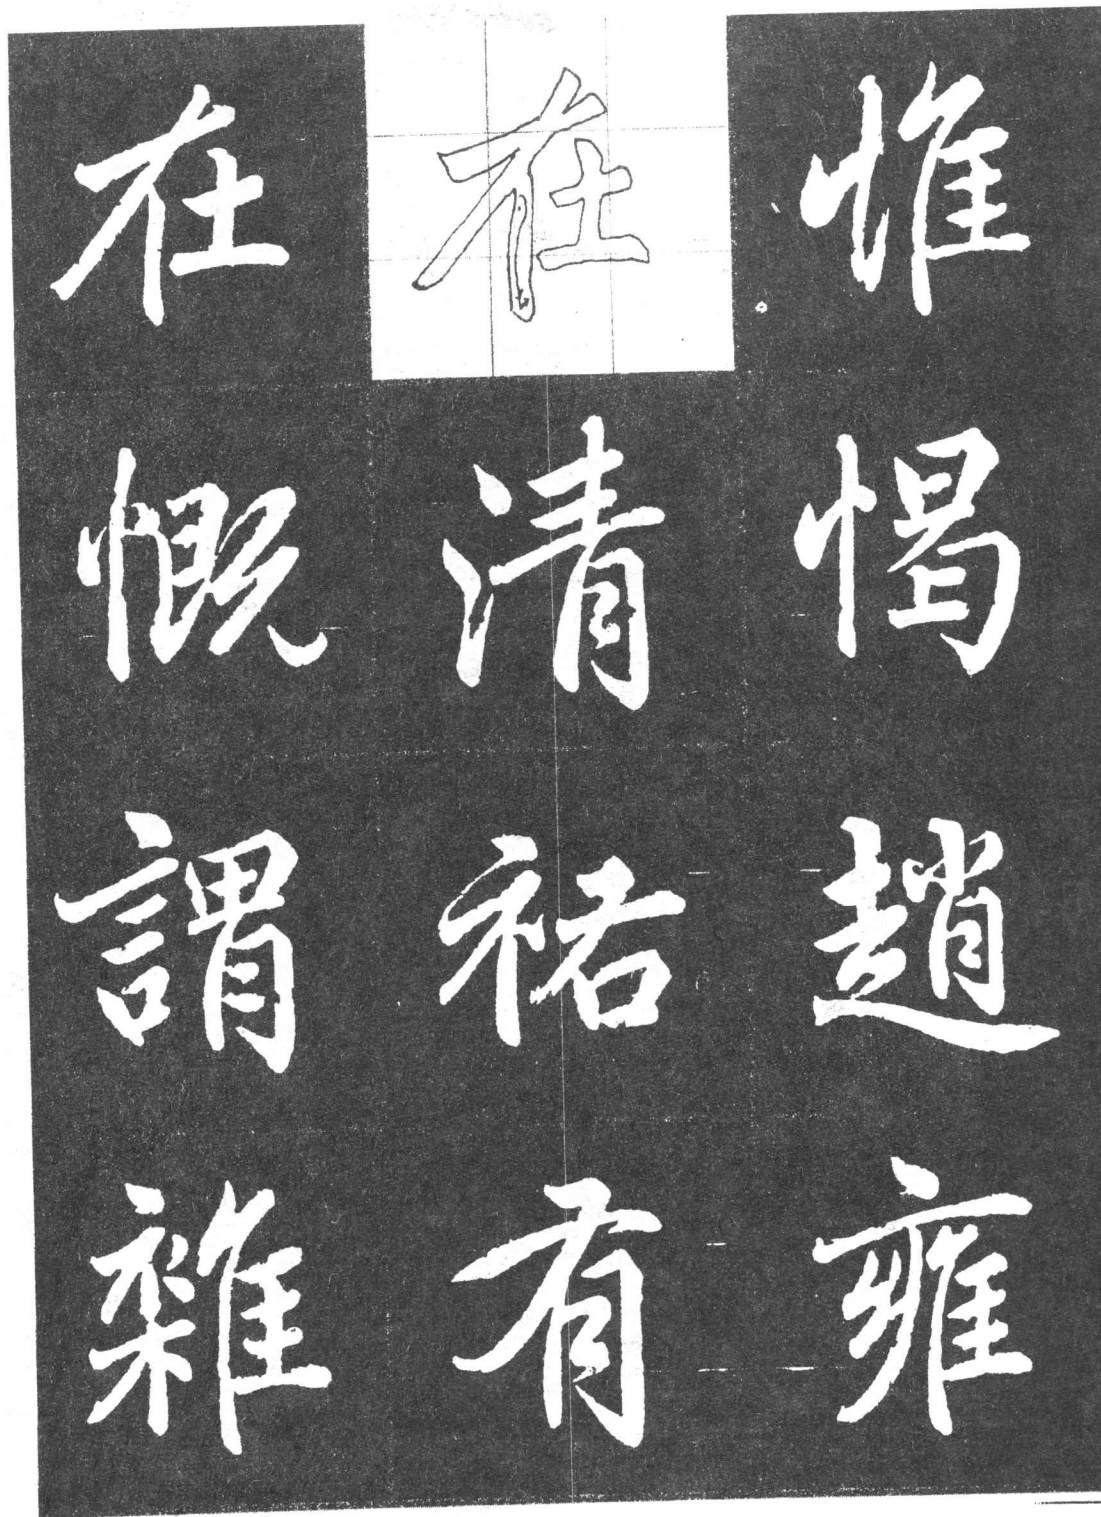 惟惕趙雍
在清祐有
在慨謂雜